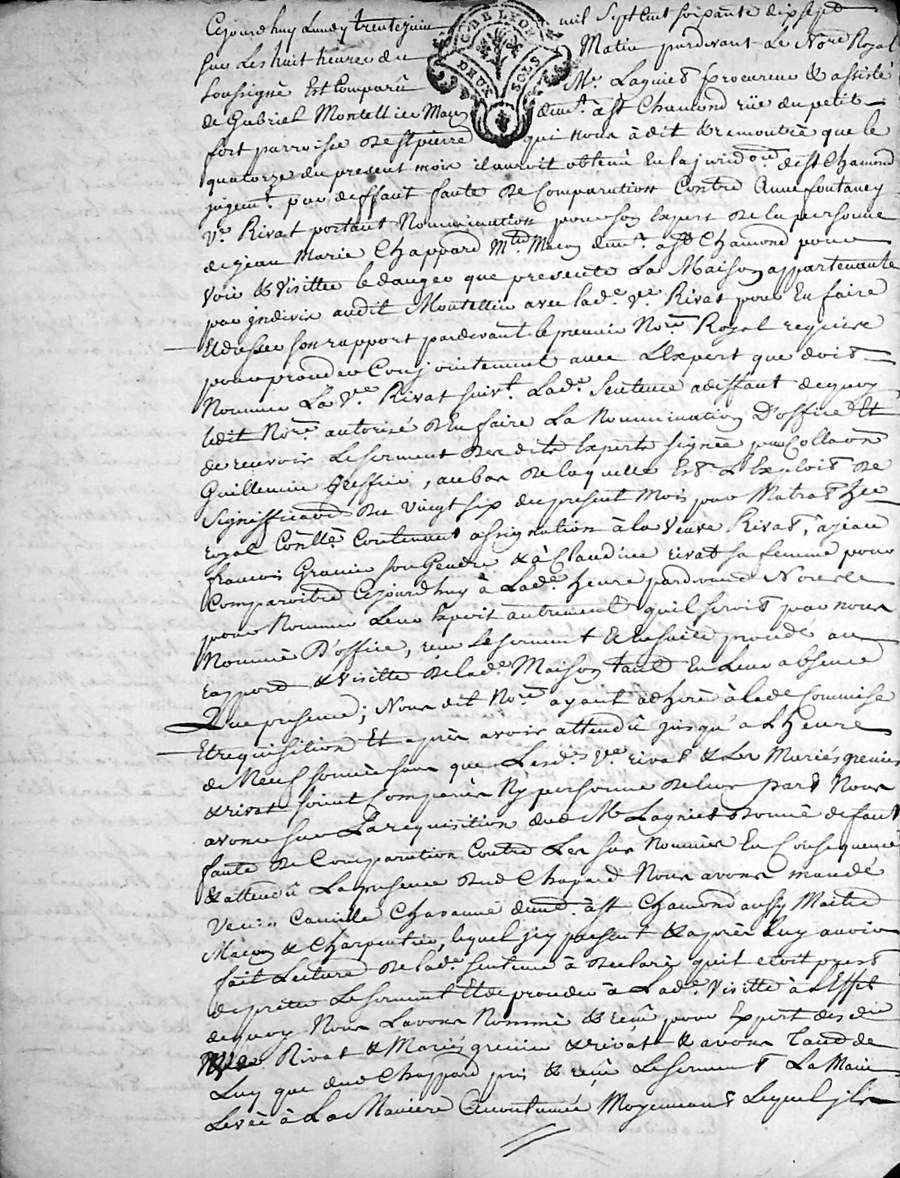 Cejourdhuy Lundy trente juin mil Sept cent soixante dix sept
Sur Les huit heures du Matin pardevant Le Nore Royal
Soussigné Est Comparû Me. Lagniet procureur & assisté
de Gabriel Montellier Maçon demt. à St Chamond rüe du petit
fort parroisse de St pierre qui nous à dit & remontré que le
quatorze du present mois il auroit obtenû En la juridon. de St Chamond
jugemt. par deffaut faute de Comparution Contre Anne fontaney
Ve. Rivat portant Nomination pour Son Expert de la personne
de jean Marie Chappard Mtre Macon demt. a St Chamond pour
voir & Visitter le danger que presente La Maison appartenante
par indivis audit Montellier avec lade. Ve. Rivat pour En faire
& dresser son rapport pardevant le premier Nore. Royal requis
pour proceder Conjointement avec L'Expert que doit
Nommer La Ve. Rivat suivt. Lade. Sentence a deffaut de quoy
ledit Nore. autorisé d'En faire La Nomination D'office Et
de recevoir Le serment desdits Experts signée par Collaon
Guillemin greffier, au bas de laquelle Est L'Exploit de
Signiffication du Vingt Six du present Mois par Matrat
royal Contenant assignation à la veuve Rivat, à jean
francois Granier son Gendre & à Claudine rivat sa femme pour
Comparoitre Cejourdhuy à Lade. heure pardevant Nore
pour Nommer Leur Expert autrement qu'il seroit par nous
Nommé D'office, recu Le serment & Ensuitte procedé au
rapport & Visitte de lade. Maison tant En Leur absence
que presence; Nous dit Nore. ayant adheré à lade Commise
Et requisition Et après avoir attendû jusqu'a L'heure
de Neuf sonnée sans que Lesd. Ve. rivat & Les Mariés grenier
& rivat soint Comparûs Ny personne de leur part Nous
avons sur La requisition dud Me Lagniet donné defaut
faute de Comparution Contre Les sus Nommés En Consequence
& attendû La presence dud Chapard Nous avons mandé
Venir Camille Chavanne demt. à St Chamond aussy Maitre
Maçon & Charpentier, lequel icy present & après luy avoir
fait Lecture de lade. sentence à declaré qu'il etoit prest
de preter Le serment Et de proceder à Lade. Visitte à L'Effet
de quoy Nous L'avons Nommé & recû pour Expert desdits
Rivat & Mariés grenier & rivat & avons Tant de
Luy que dud Chappard pris & reçû Le serment La Main
Levée à La Maniere Accoutumée Moyennant Lequel ils